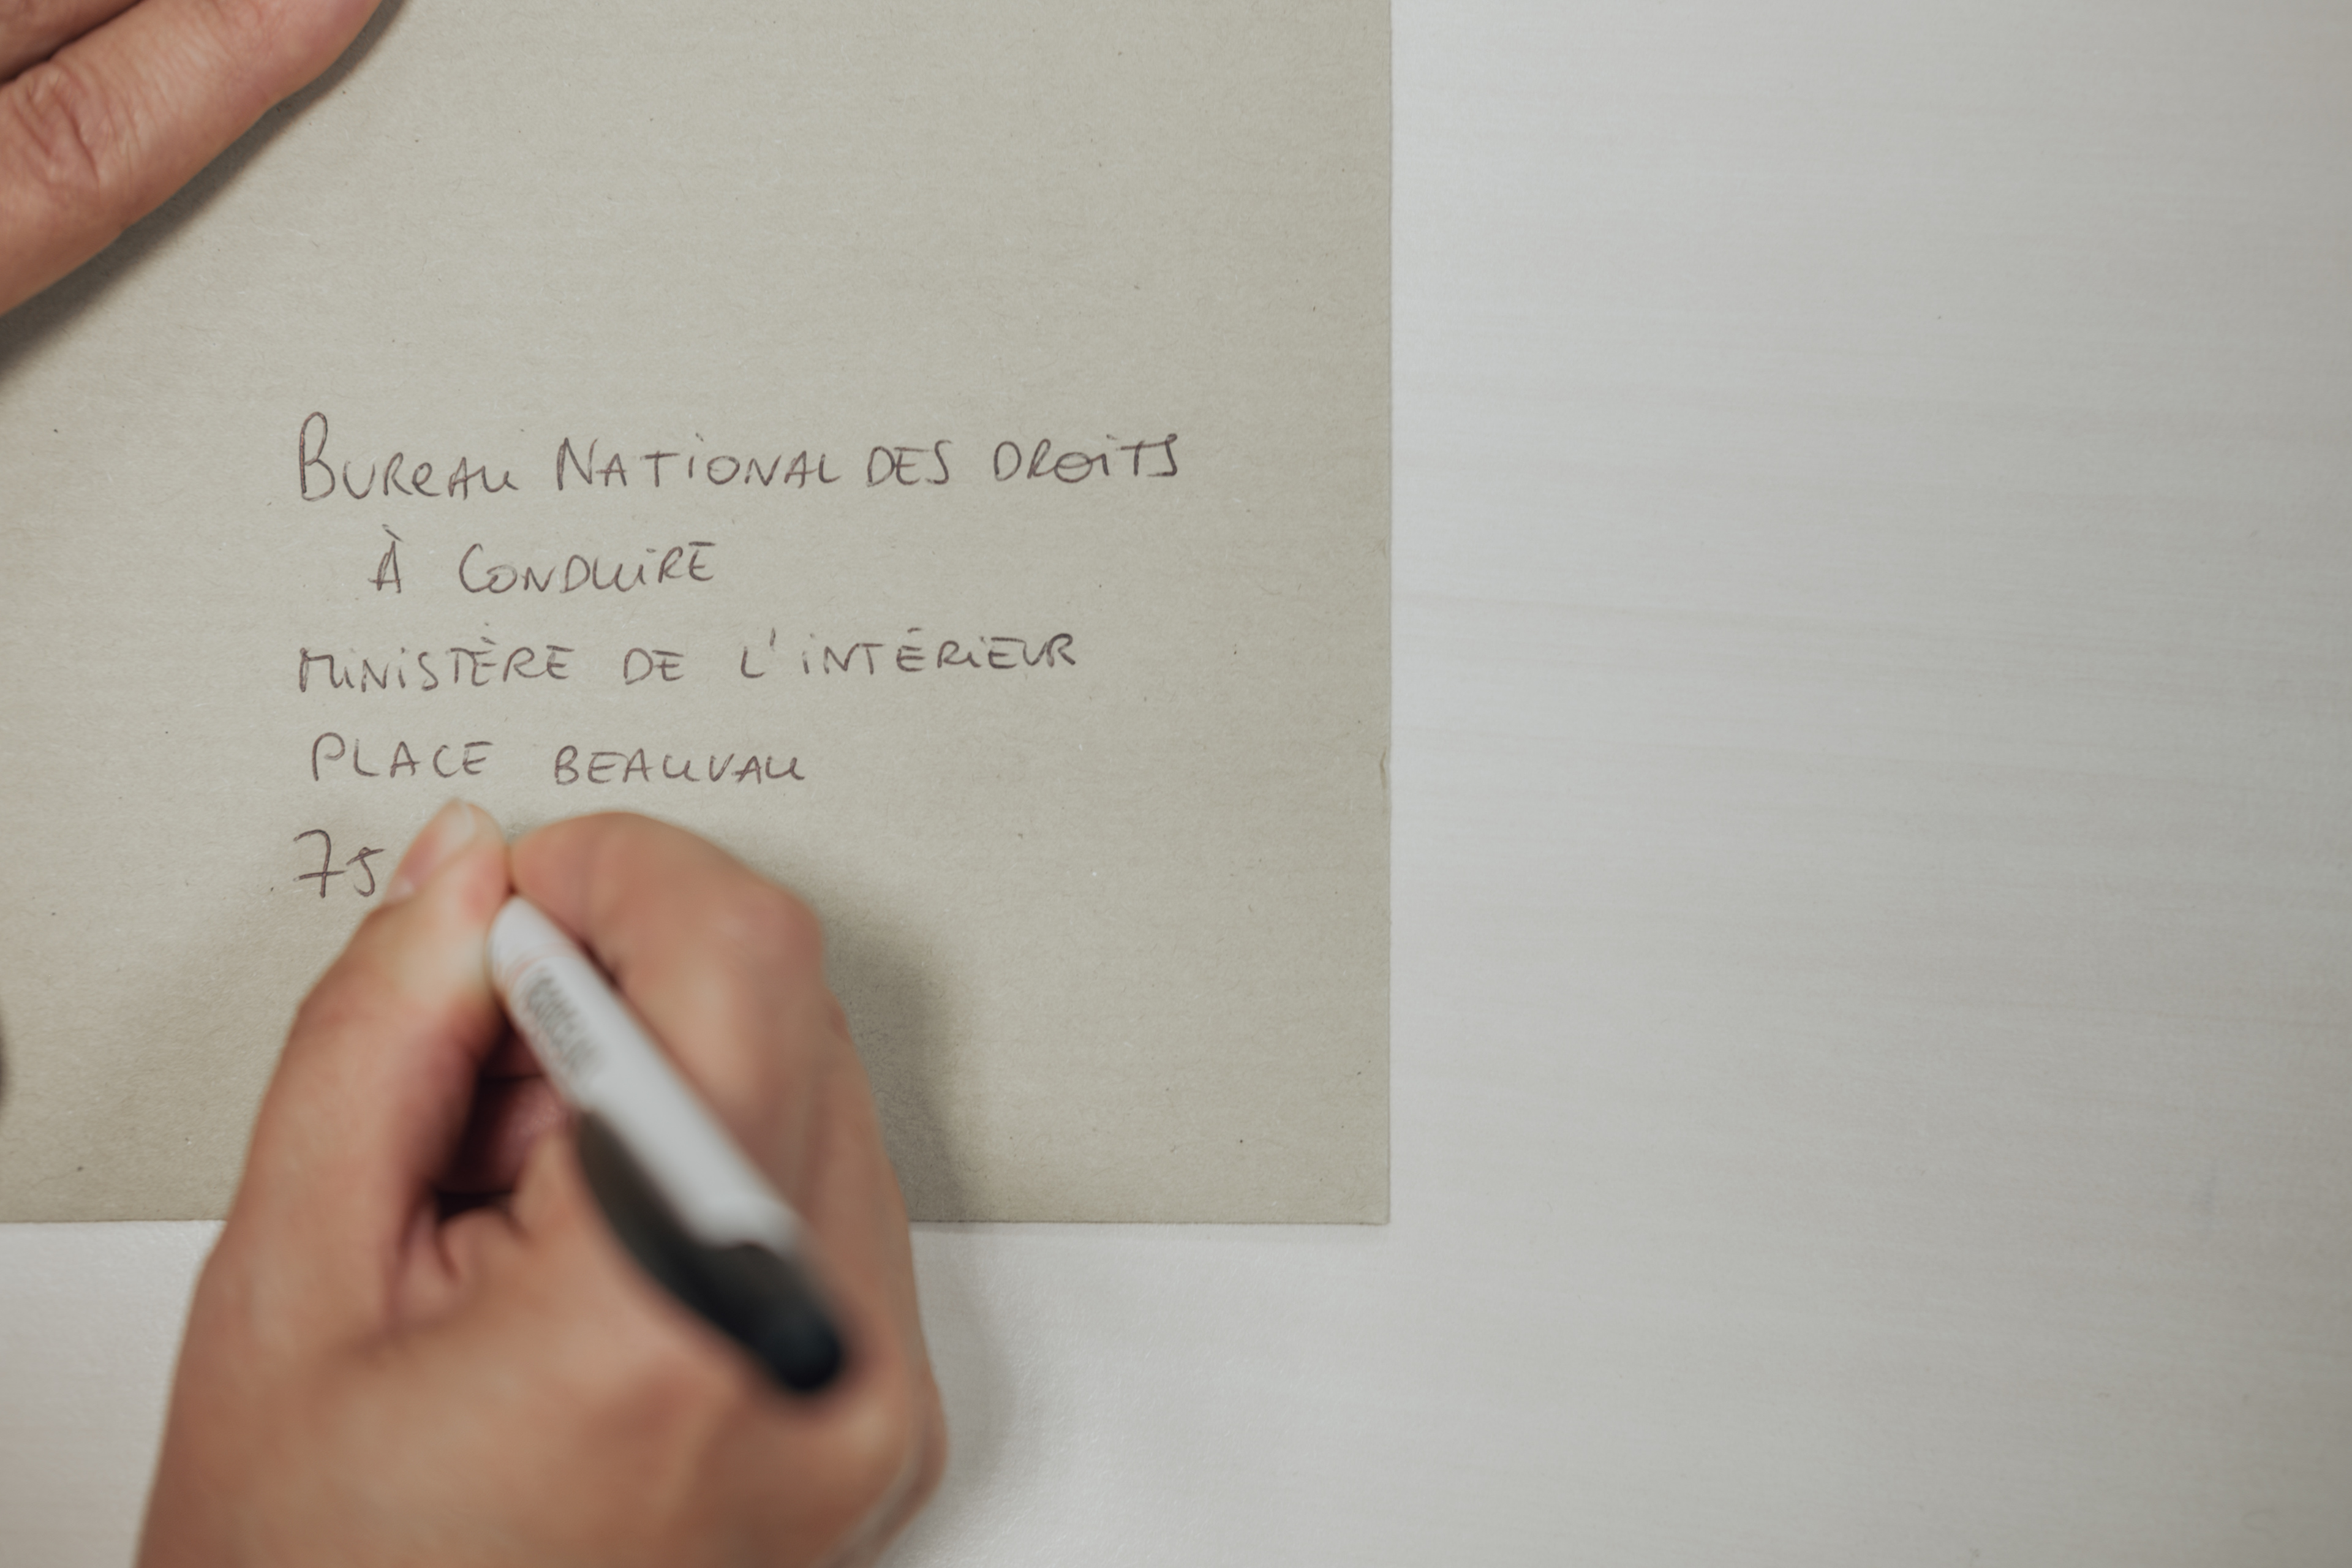 Bureau National des Droits
à Conduire
Ministère de l'Intérieur
Place Beauvau
75